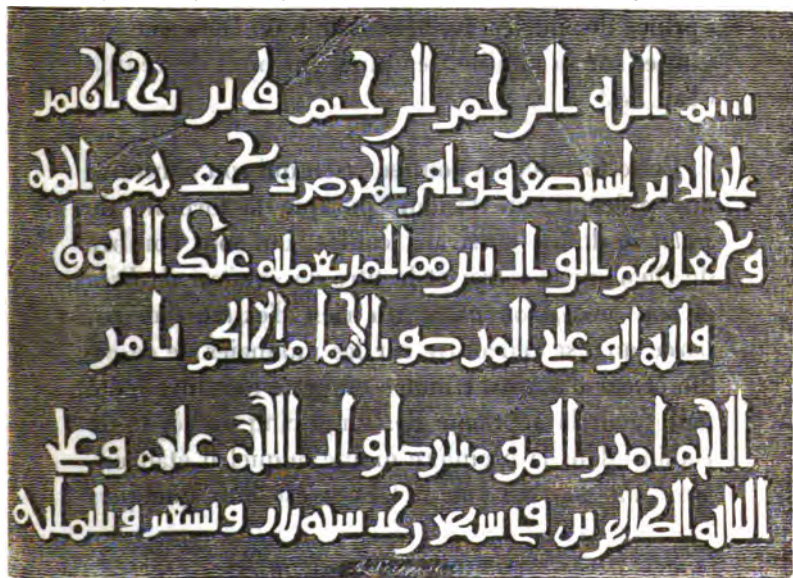 بسم الله الرحمن الرحيم ونريد ان نمن
على الذين استضعفوا فى الارض ونجعلهم ائمة
ونجعلهم الوارثين مما امر بعمله عبد الله و
وليه ابو على المنصور الامام الحاكم بامر
الله امير المومنين صلوات الله عليه وعلى
ابائه الطاهرين فى شهر رجب سنة ثلاث وتسعين وثلثمائة